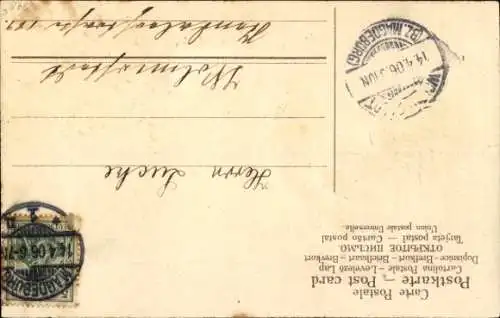 Carte Postale
Postkarte — Post card
Cartolina Postale - Levelező Lap
Dopisnice - Brefkort - Briefkaart - Brevkort
ОТКРЫТОЕ ПИСЬМО.
Tarjeta postal — Cartão postal
Union postale Universelle.
Herrn Luche
Wolmirstedt
(BZ. MAGDEBURG)
14.4.06.
MAGDEBURG
14.4.06.6-7N